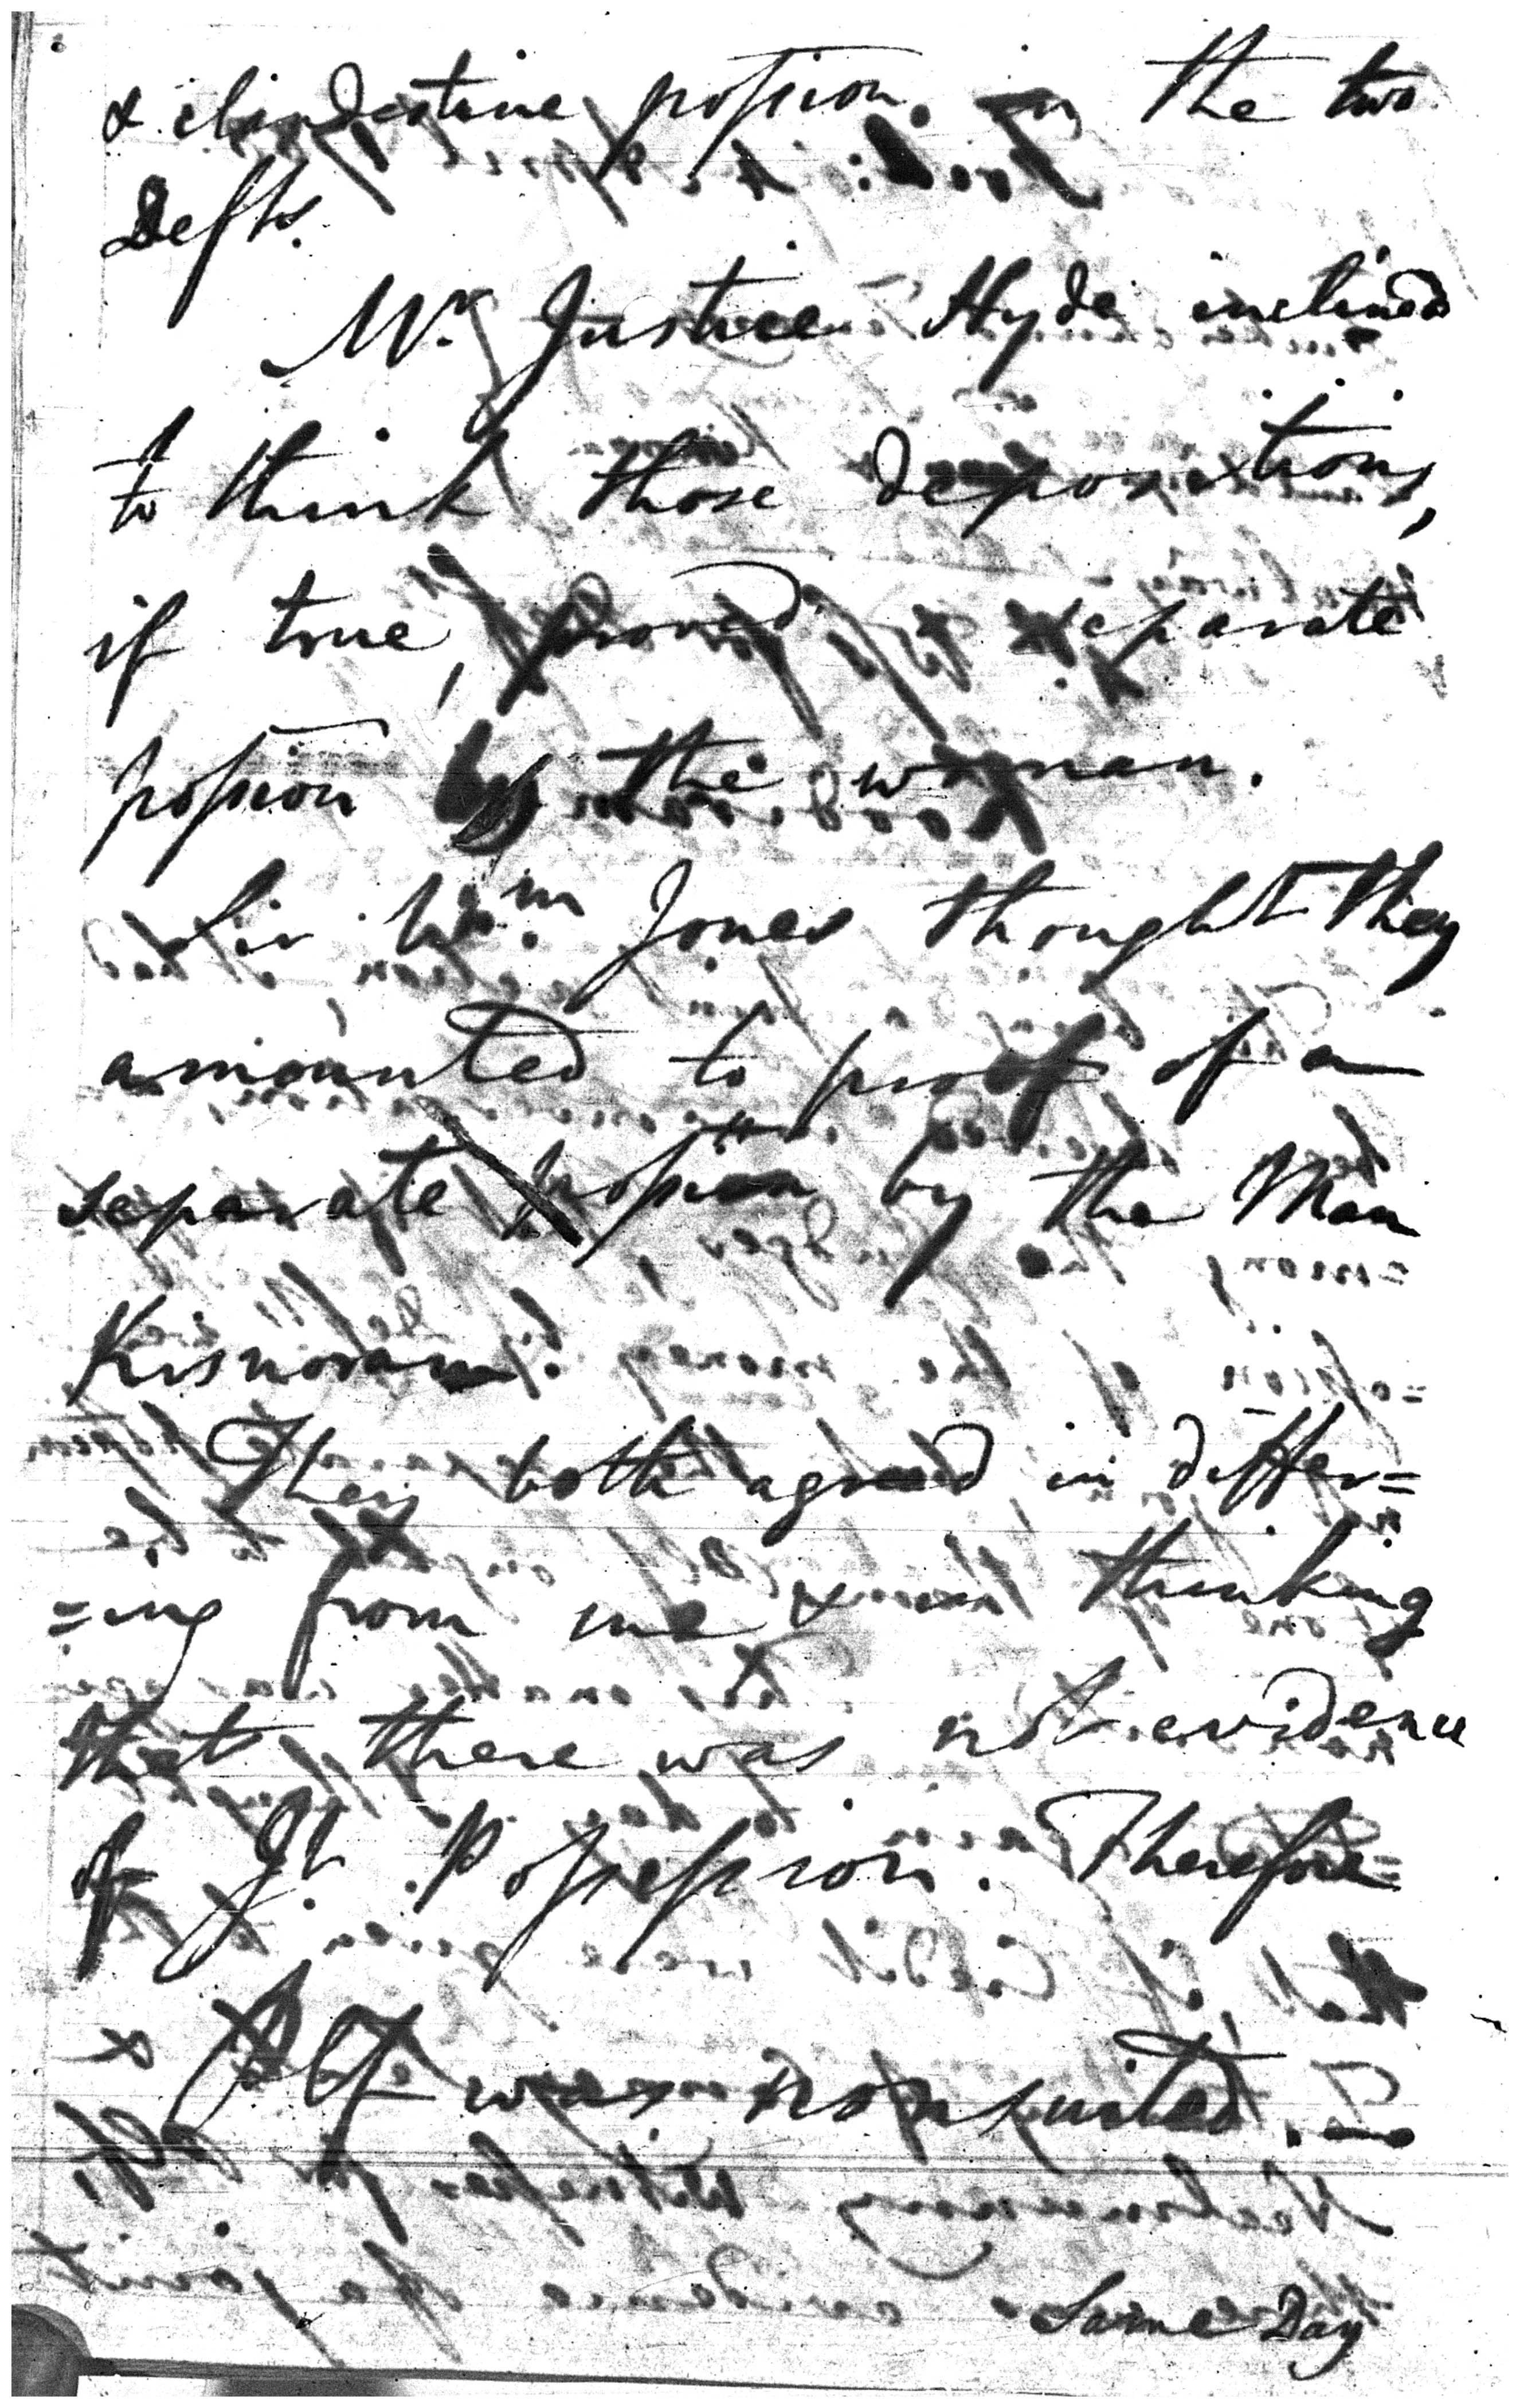 & clandestine poſsion in the two
Defts.
Mr. Justice Hyde inclined
to think those depositions,
if true, proved a separate
poſsion by the woman.
Sir Wm. Jones thought they
amounted to proof of a
separate poſsion by the Man
Kisnoram.
They both agreed in differ=
=ing from me & in thinking
that there was not evidence
of Jt. Poſseſsion. Therefore
Plt was nonsuited.
Same Day